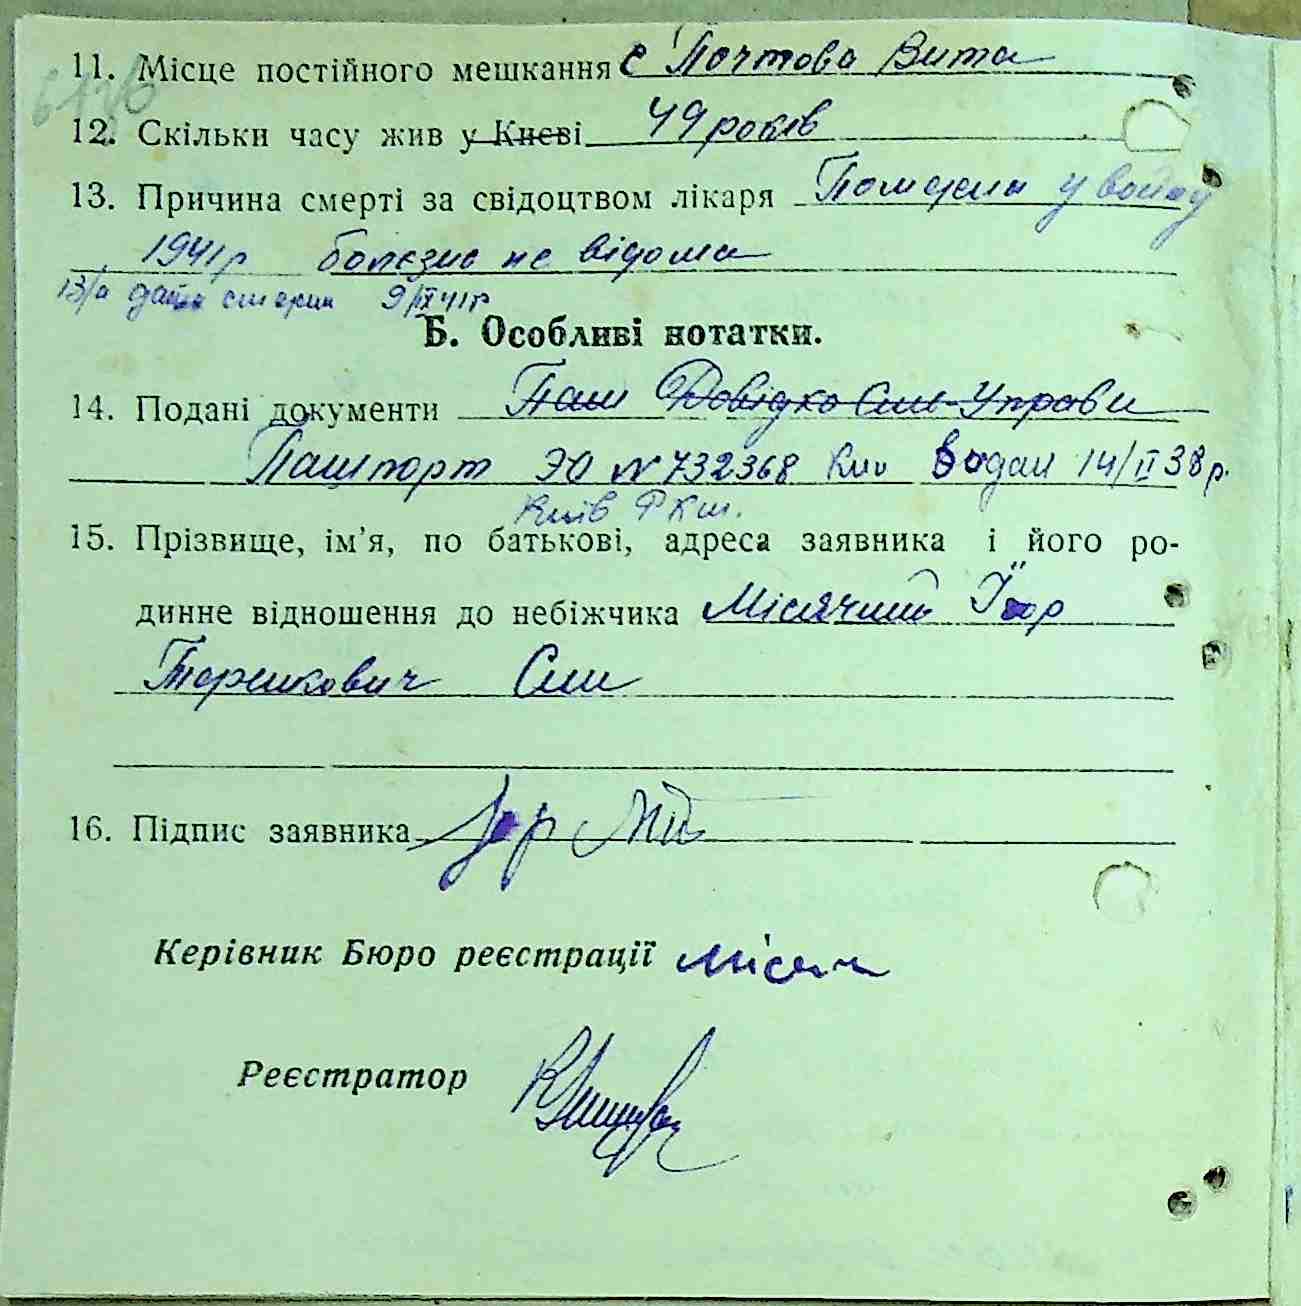 11. Місце постійного мешкання с Почтова Вита
12. Скільки часу жив у Києві 49 років
13. Причина смерті за свідоцтвом лікаря Померла у войну
1941р болєзнь не відома
13/а дата смерти 9/ІХ 41 р
Б. Особливі нотатки.
14. Подані документи Паш Довідка Сіль-Управи
Пашпорт ЭО № 732368 видан 14/ІІ 38 р.
Київ РКМ.
15. Прізвище, ім’я, по батькові, адреса заявника і його ро-
динне відношення до небіжчика Місячний Їгор
Син
16. Підпис заявника
Керівник Бюро реєстрації
Реєстратор